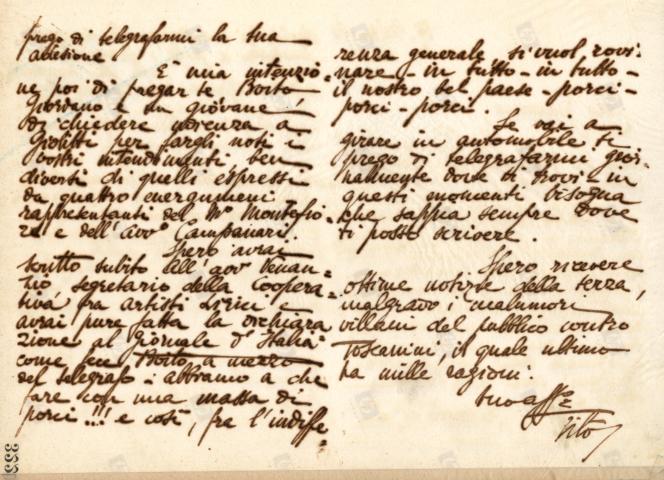 prego di telegrafarmi la tua
adesione
È mia intenzio=
ne poi di pregar te Boito
Giordano e un giovane,
di chiedere udienza a
Giolitti per fargli noti i
vostri intendimenti, ben
diversi di quelli espressi
da quattro energumeni
rappresentanti del Mo Montefio=
re e dell'avvo Campanari.
Spero avrai
scritto subito all'avvo Venan=
zio segretario della Coopera=
tiva fra Artisti Lirici e
avrai pure fatta la dichiara
zione al Giornale d'Italia
come fece Boito a mezzo
del telegrafo - abbiamo a che
fare con una massa di
porci!!! e così, fra l'indiffe=
renza generale si vuol rovi=
nare - in tutto - in tutto -
il nostro bel paese - porci -
porci - porci.
Se vai a
girare in automobile ti
prego di telegrafarmi gior=
nalmente dove ti trovi in
questi momenti bisogna
che sappia sempre dove
ti posso scrivere.
Spero ricevere
ottime notizie della terza,
malgrado i malumori
villani del pubblico contro
Toscanini, il quale ultimo
ha mille ragioni.
tuo affo
Tito